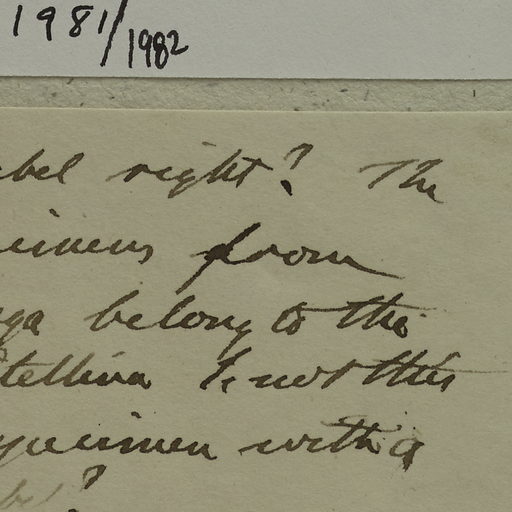 1981/1982
bel right? The
cimens from
ga belong to the
tellina Is not this
specimen with a
bel?